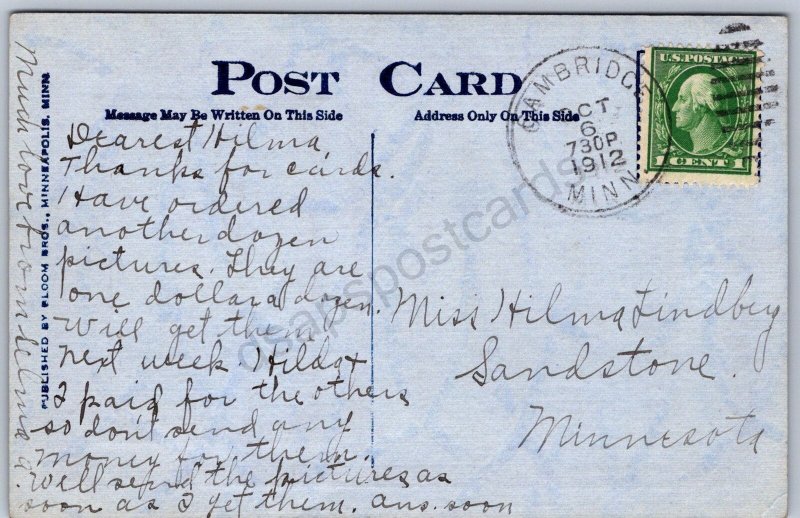 POST CARD
Message May Be Written On This Side
Address Only On This Side
CAMBRIDGE
OCT
6
730P
1912
MINN
U.S. POSTAGE
1 CENT 1
Dearest Hilma,
Thanks for cards.
I have ordered
another dozen
pictures. They are
one dollar a dozen.
Will get them
next week. Hilda +
I paid for the others
so don't send any
money for them.
Will send the pictures as
soon as I get them. ans. soon
Much love from
Miss Hilma Lindbey
Sandstone.
Minnesota
PUBLISHED BY BLOOM BROS., MINNEAPOLIS, MINN.